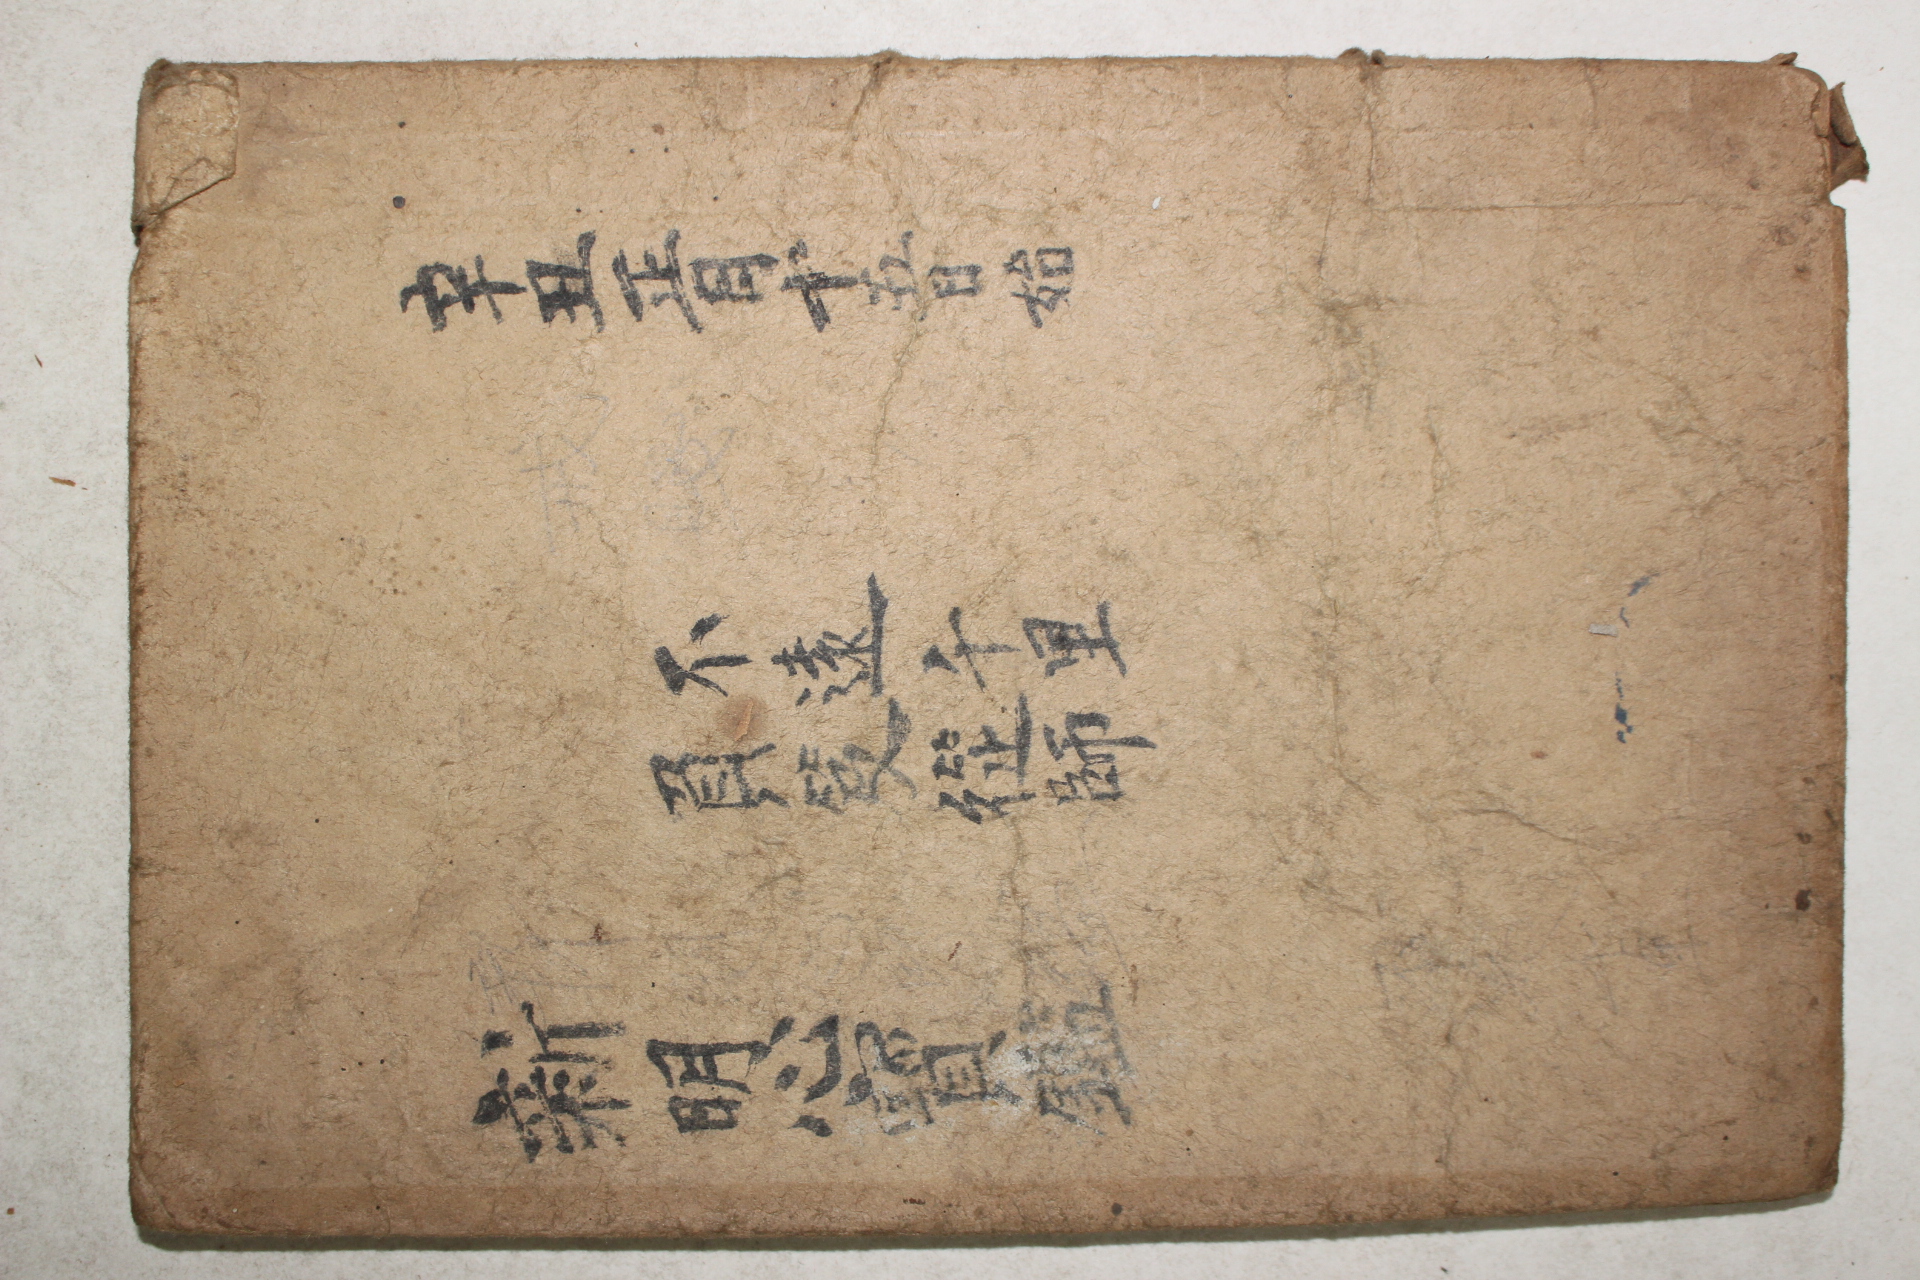 辛丑正月十五日始
不遠千里
負笈從師
新明心寶鑑